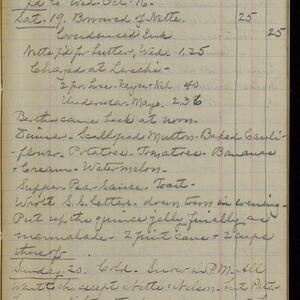 pd to Wed. Oct. 16.
Sat. 19. Borrowed of Nette. 25
Condensed Milk 25
Nette p'd for butter, Wed. 1.25
Charged at
2 pr hose - Keyes - Nil 40
Underwear - Mayo. 2.36
Bertha came back at noon.
Dinner - Scalloped Mutton - Baked Cauli-
-flower - Potatoes - Tomatoes - Bananas
+ Cream - Watermelon.
Supper Pear Sauce. Toast.
Wrote S.S. letters. down town in evening.
Put up the quince jelly, finally, as
marmalade - 2 pint cans + 2 cups
thereof.
Sunday 20. Cold. Snow in P.M. All
went to ch. except Nette + Nelson.